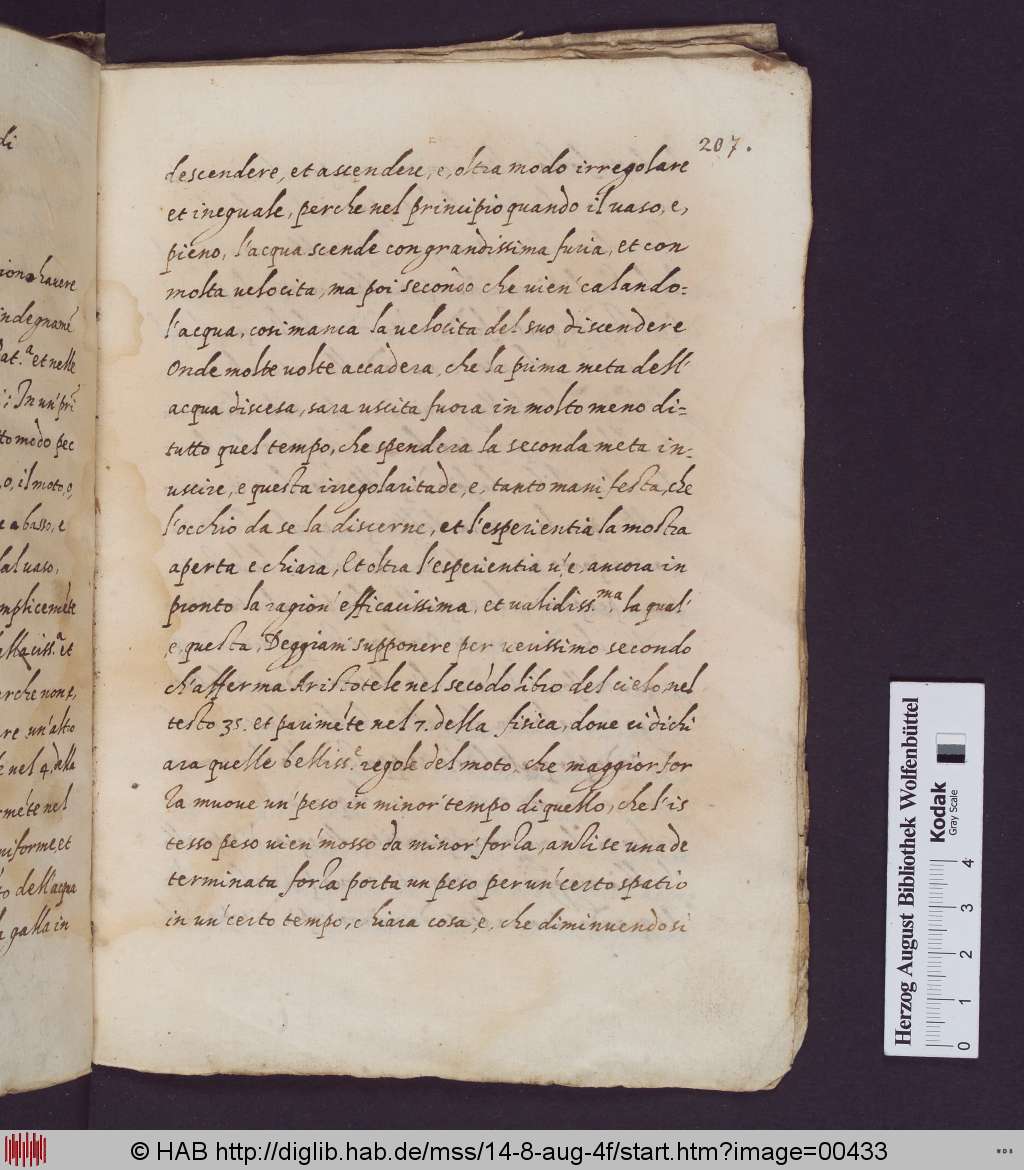 207.
descendere, et ascendere, e, oltra modo irregolare
et ineguale, perche nel principio quando il uaso, e,
pieno, l'acqua scende con grandissima furia, et con
molta uelocita, ma poi secondo che uien' calando=
l'acqua, cosi manca la uelocita del suo discendere
Onde molte uolte accadera, che la prima meta dell'
acqua discesa, sara uscita fuora in molto meno di=
tutto quel tempo, che spendera la seconda meta in=
uscire, e questa irregolaritade, e, tanto manifesta, che
l'occhio da se la discerne, et l'esperientia la mostra
aperta e chiara, Et oltra l'esperientia u'e, ancora in
pronto la ragion' efficacissima, et ualidiss.ma, la qual'
e, questa, Deggiam supponere per uerissimo secondo
ch'afferma Aristotele nel secōdo libro del cielo, nel
testo 35. et parimēte nel 7. della fisica, doue ci dichi
ara quelle belliss.e regole del moto, che maggior for
za muoue un' peso in minor' tempo di quello, che l'is
tesso peso uien' mosso da minor' forza, anzi se una de
terminata forza porta un peso per un' certo spatio
in un' certo tempo, chiara cosa, e, che diminuendosi
di
hauere
indegnamē
et nelle
In un' pri
modo pec
o, il moto, e,
a basso, e
al uaso,
mplicemēte
et
rche non e,
re un'altro
e nel 4. della
rmēte nel
niforme, et
dell'acqua
galla in
Herzog August Bibliothek Wolfenbüttel
Kodak
Gray Scale
0 1 2 3 4
© HAB http://diglib.hab.de/mss/14-8-aug-4f/start.htm?image=00433